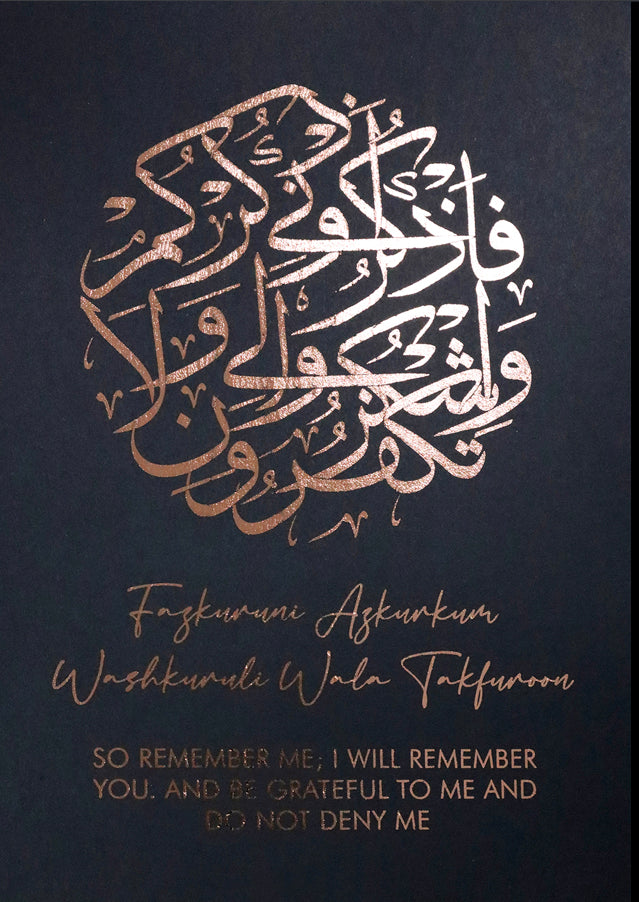 فاذكروني أذكركم
واشكروا لي ولا
تكفرون
Fazkuruni Azkurkum
Washkuruli Wala Takfuroon
SO REMEMBER ME; I WILL REMEMBER
YOU. AND BE GRATEFUL TO ME AND
DO NOT DENY ME